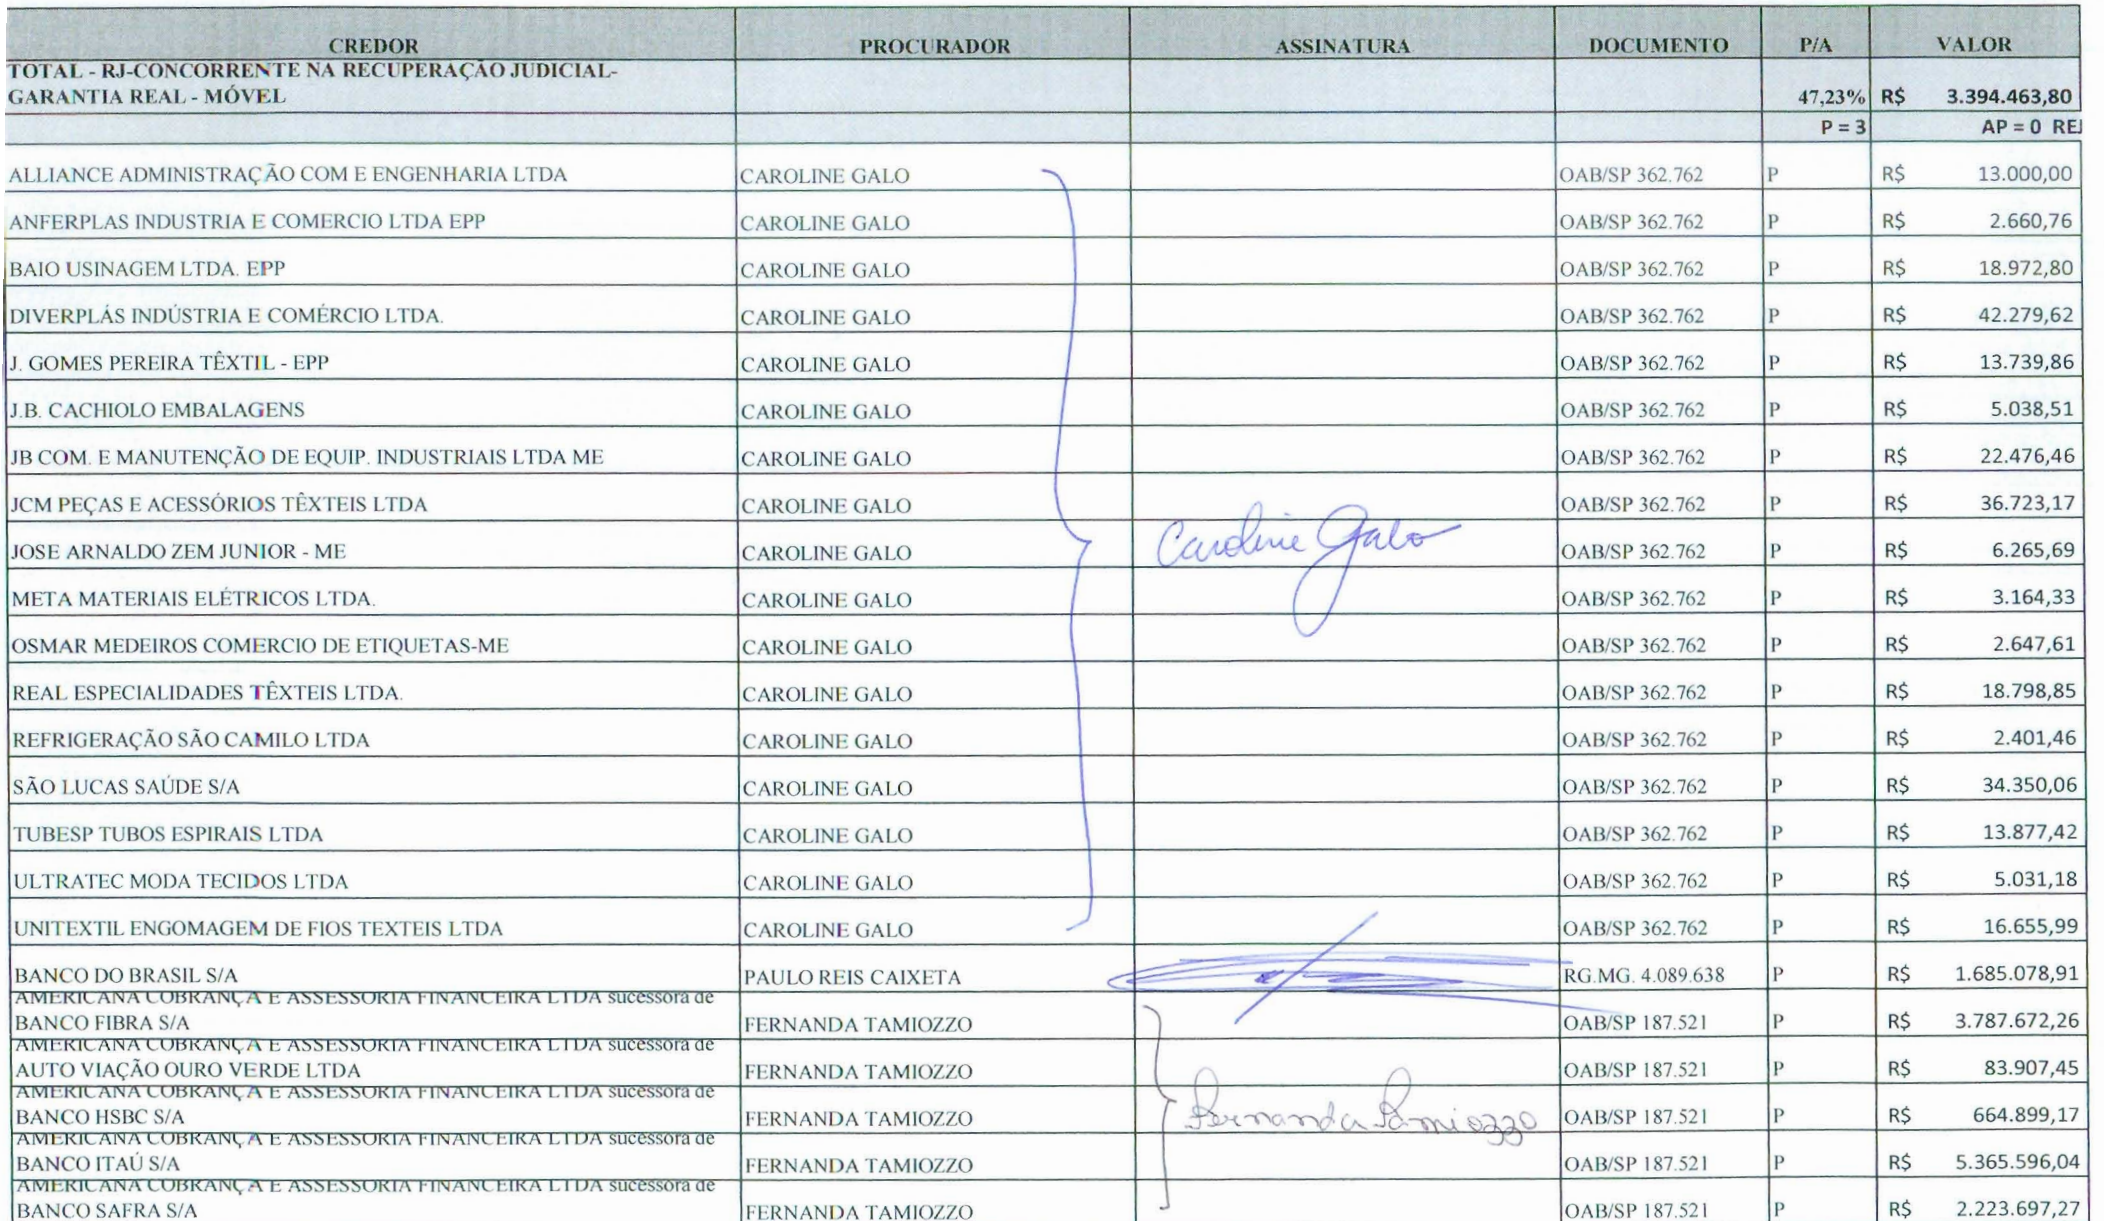 CREDOR PROCURADOR ASSINATURA DOCUMENTO P/A VALOR
TOTAL - RJ-CONCORRENTE NA RECUPERAÇÃO JUDICIAL-
GARANTIA REAL - MÓVEL 47,23% R$ 3.394.463,80
P = 3 AP = 0 REJ
ALLIANCE ADMINISTRAÇÃO COM E ENGENHARIA LTDA CAROLINE GALO OAB/SP 362.762 P R$ 13.000,00
ANFERPLAS INDUSTRIA E COMERCIO LTDA EPP CAROLINE GALO OAB/SP 362.762 P R$ 2.660,76
BAIO USINAGEM LTDA. EPP CAROLINE GALO OAB/SP 362.762 P R$ 18.972,80
DIVERPLÁS INDÚSTRIA E COMÉRCIO LTDA. CAROLINE GALO OAB/SP 362.762 P R$ 42.279,62
J. GOMES PEREIRA TÊXTIL - EPP CAROLINE GALO OAB/SP 362.762 P R$ 13.739,86
J.B. CACHIOLO EMBALAGENS CAROLINE GALO OAB/SP 362.762 P R$ 5.038,51
JB COM. E MANUTENÇÃO DE EQUIP. INDUSTRIAIS LTDA ME CAROLINE GALO OAB/SP 362.762 P R$ 22.476,46
JCM PEÇAS E ACESSÓRIOS TÊXTEIS LTDA CAROLINE GALO OAB/SP 362.762 P R$ 36.723,17
JOSE ARNALDO ZEM JUNIOR - ME CAROLINE GALO Caroline Galo OAB/SP 362.762 P R$ 6.265,69
META MATERIAIS ELÉTRICOS LTDA. CAROLINE GALO OAB/SP 362.762 P R$ 3.164,33
OSMAR MEDEIROS COMERCIO DE ETIQUETAS-ME CAROLINE GALO OAB/SP 362.762 P R$ 2.647,61
REAL ESPECIALIDADES TÊXTEIS LTDA. CAROLINE GALO OAB/SP 362.762 P R$ 18.798,85
REFRIGERAÇÃO SÃO CAMILO LTDA CAROLINE GALO OAB/SP 362.762 P R$ 2.401,46
SÃO LUCAS SAÚDE S/A CAROLINE GALO OAB/SP 362.762 P R$ 34.350,06
TUBESP TUBOS ESPIRAIS LTDA CAROLINE GALO OAB/SP 362.762 P R$ 13.877,42
ULTRATEC MODA TECIDOS LTDA CAROLINE GALO OAB/SP 362.762 P R$ 5.031,18
UNITEXTIL ENGOMAGEM DE FIOS TEXTEIS LTDA CAROLINE GALO OAB/SP 362.762 P R$ 16.655,99
BANCO DO BRASIL S/A PAULO REIS CAIXETA RG.MG. 4.089.638 P R$ 1.685.078,91
AMERICANA COBRANÇA E ASSESSORIA FINANCEIRA LTDA sucessora de
BANCO FIBRA S/A FERNANDA TAMIOZZO OAB/SP 187.521 P R$ 3.787.672,26
AMERICANA COBRANÇA E ASSESSORIA FINANCEIRA LTDA sucessora de
AUTO VIAÇÃO OURO VERDE LTDA FERNANDA TAMIOZZO OAB/SP 187.521 P R$ 83.907,45
AMERICANA COBRANÇA E ASSESSORIA FINANCEIRA LTDA sucessora de
BANCO HSBC S/A FERNANDA TAMIOZZO Fernanda Tamiozzo OAB/SP 187.521 P R$ 664.899,17
AMERICANA COBRANÇA E ASSESSORIA FINANCEIRA LTDA sucessora de
BANCO ITAÚ S/A FERNANDA TAMIOZZO OAB/SP 187.521 P R$ 5.365.596,04
AMERICANA COBRANÇA E ASSESSORIA FINANCEIRA LTDA sucessora de
BANCO SAFRA S/A FERNANDA TAMIOZZO OAB/SP 187.521 P R$ 2.223.697,27